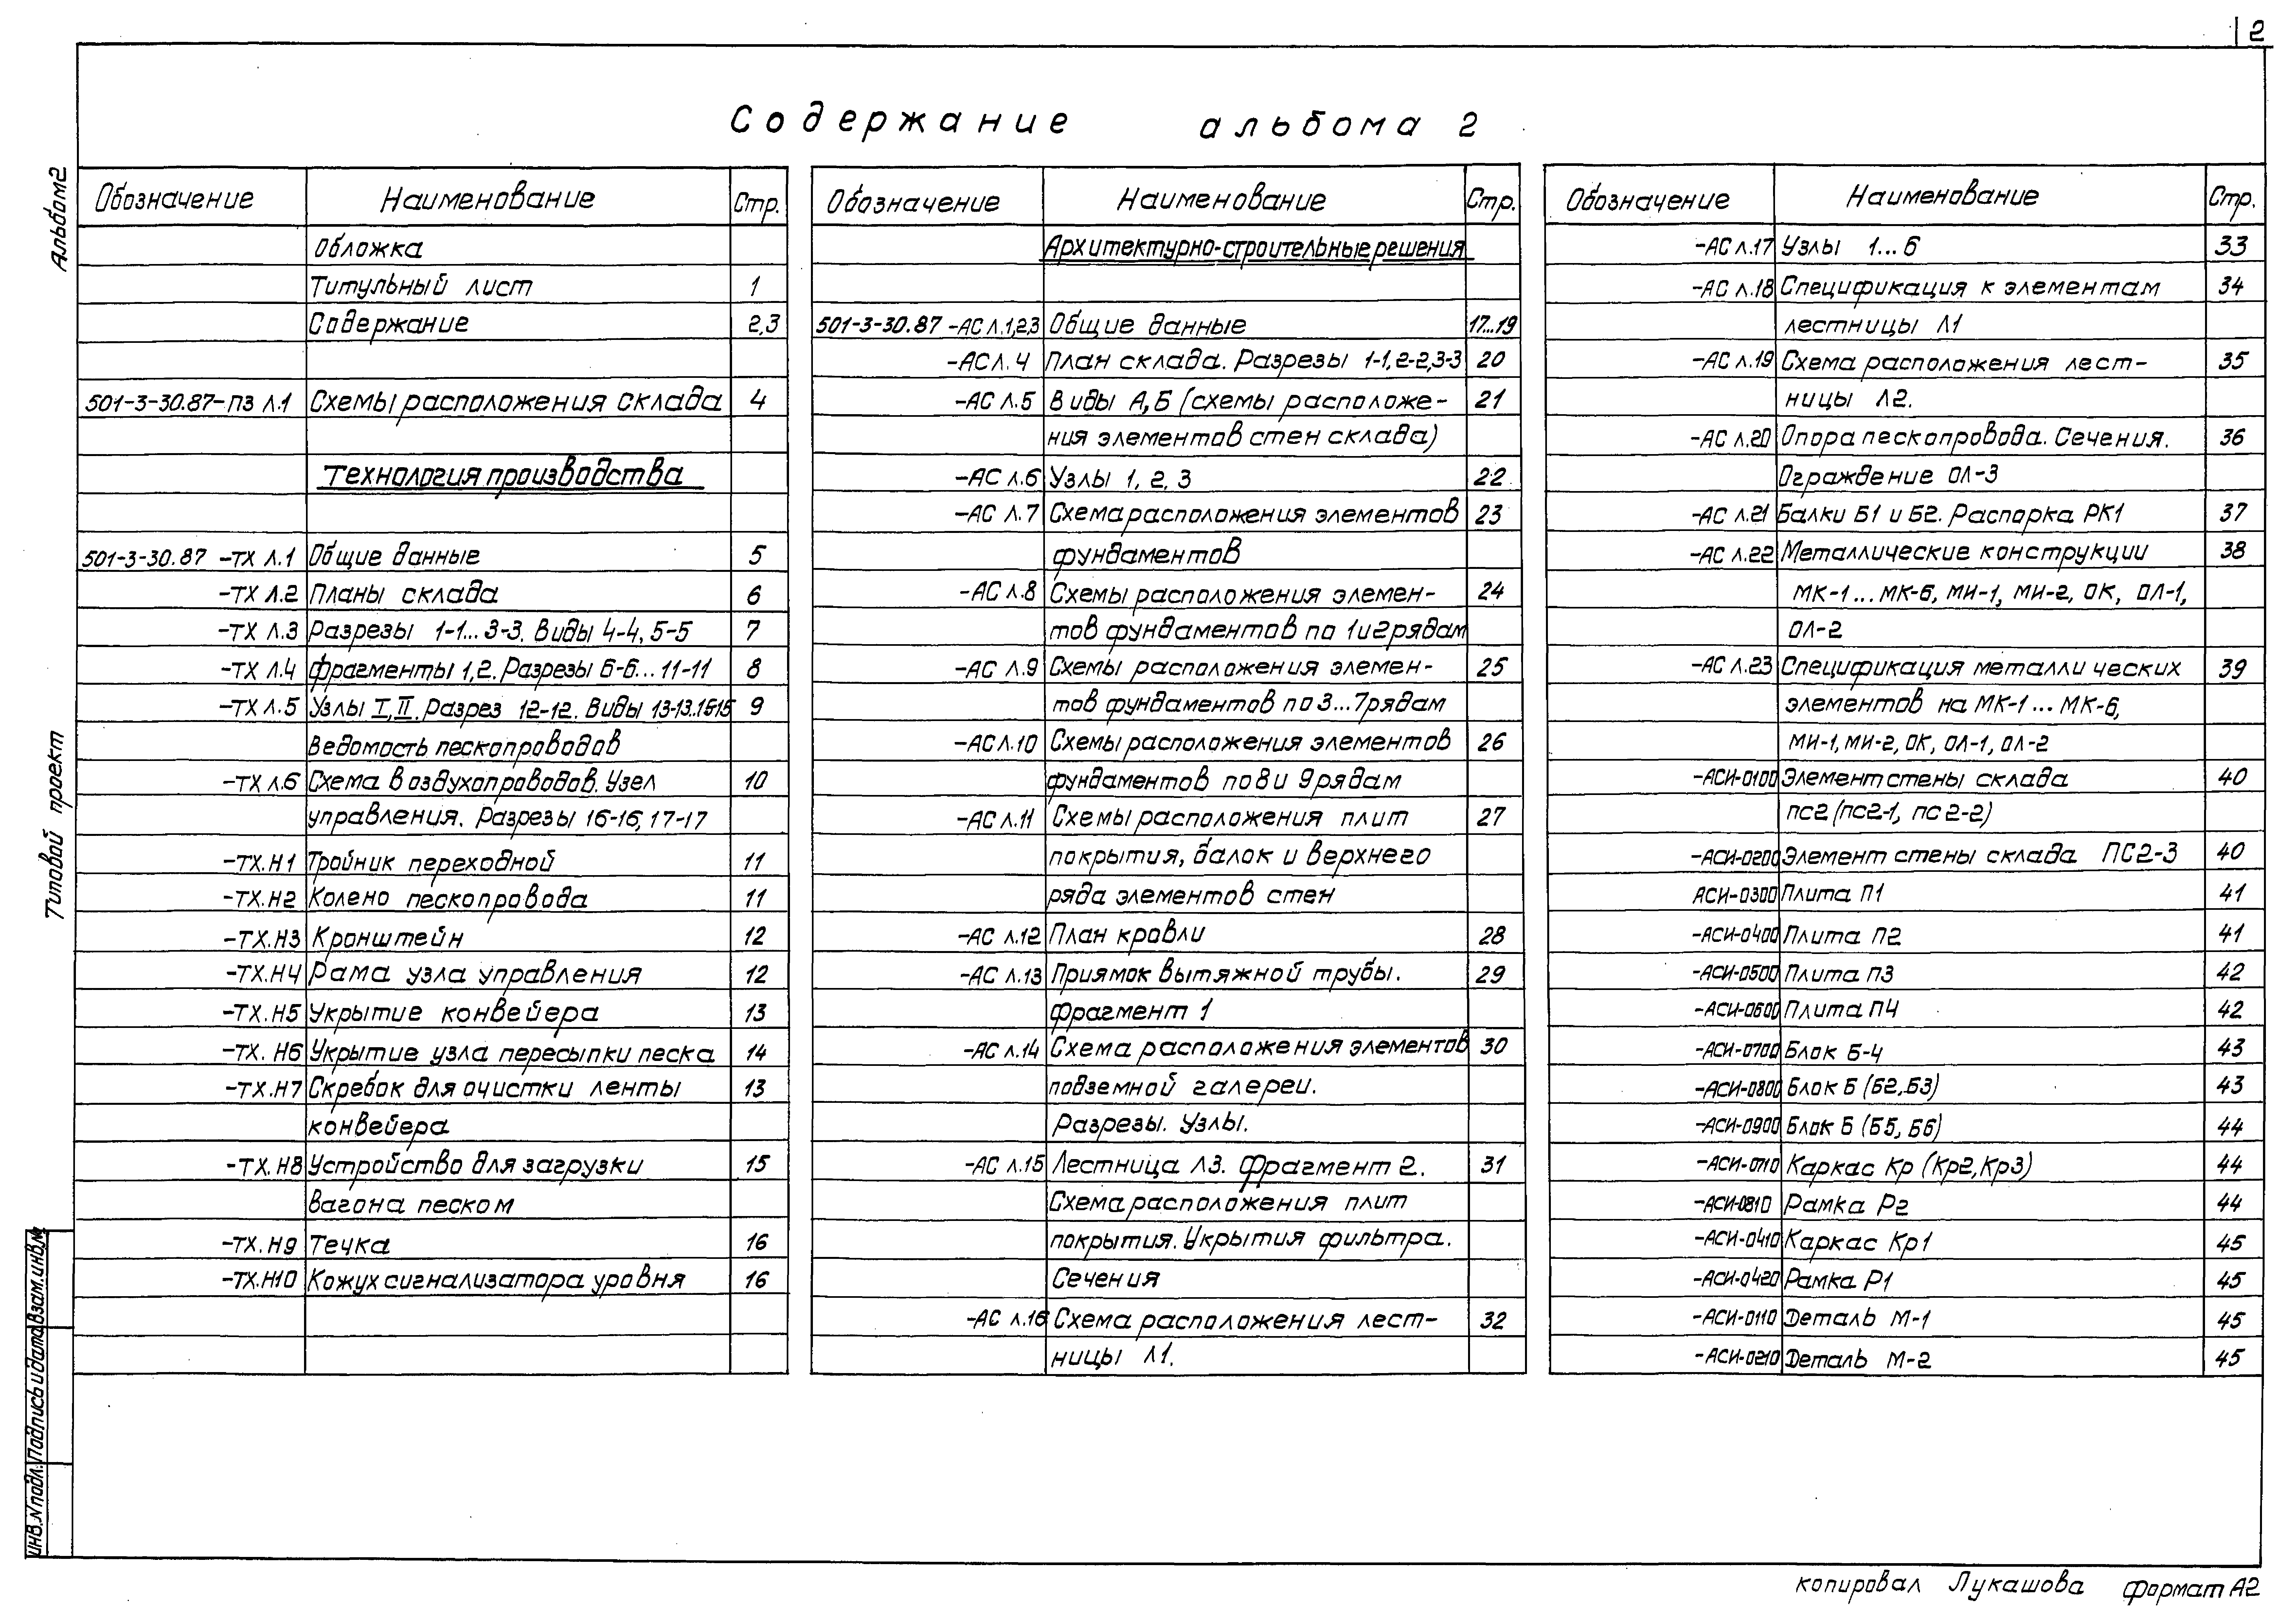 2
Содержание альбома 2
Альбом 2
Типовой проект
Обозначение Наименование Стр.
Обложка
Титульный лист 1
Содержание 2,3
501-3-30.87-ПЗ Л.1 Схемы расположения склада 4
Технология производства
501-3-30.87 -ТХ Л.1 Общие данные 5
-ТХ Л.2 Планы склада 6
-ТХ Л.3 Разрезы 1-1...3-3. Виды 4-4, 5-5 7
-ТХ Л.4 Фрагменты 1,2. Разрезы 6-6...11-11 8
-ТХ Л.5 Узлы I, II. Разрез 12-12. Виды 13-13..15-15 9
Ведомость пескопроводов
-ТХ Л.6 Схема воздухопроводов. Узел 10
управления. Разрезы 16-16, 17-17
-ТХ.Н1 Тройник переходной 11
-ТХ.Н2 Колено пескопровода 11
-ТХ.Н3 Кронштейн 12
-ТХ.Н4 Рама узла управления 12
-ТХ.Н5 Укрытие конвейера 13
-ТХ.Н6 Укрытие узла пересыпки песка 14
-ТХ.Н7 Скребок для очистки ленты 13
конвейера
-ТХ.Н8 Устройство для загрузки 15
вагона песком
-ТХ.Н9 Течка 16
-ТХ.Н10 Кожух сигнализатора уровня 16
Обозначение Наименование Стр.
Архитектурно-строительные решения
501-3-30.87 -АС Л.1,2,3 Общие данные 17...19
-АС Л.4 План склада. Разрезы 1-1, 2-2, 3-3 20
-АС Л.5 Виды А,Б (схемы расположе- 21
ния элементов стен склада)
-АС Л.6 Узлы 1, 2, 3 22
-АС Л.7 Схема расположения элементов 23
фундаментов
-АС Л.8 Схемы расположения элемен- 24
тов фундаментов по 1 и 2 рядам
-АС Л.9 Схемы расположения элемен- 25
тов фундаментов по 3...7 рядам
-АС Л.10 Схемы расположения элементов 26
фундаментов по 8 и 9 рядам
-АС Л.11 Схемы расположения плит 27
покрытия, балок и верхнего
ряда элементов стен
-АС Л.12 План кровли 28
-АС Л.13 Приямок вытяжной трубы. 29
Фрагмент 1
-АС Л.14 Схема расположения элементов 30
подземной галереи.
Разрезы. Узлы.
-АС Л.15 Лестница Л3. Фрагмент 2. 31
Схема расположения плит
покрытия. Укрытия фильтра.
Сечения
-АС Л.16 Схема расположения лест- 32
ницы Л1.
Обозначение Наименование Стр.
-АС Л.17 Узлы 1...6 33
-АС Л.18 Спецификация к элементам 34
лестницы Л1
-АС Л.19 Схема расположения лест- 35
ницы Л2.
-АС Л.20 Опора пескопровода. Сечения. 36
Ограждение ОЛ-3
-АС Л.21 Балки Б1 и Б2. Распорка РК1 37
-АС Л.22 Металлические конструкции 38
МК-1...МК-6, МИ-1, МИ-2, ОК, ОЛ-1,
ОЛ-2
-АС Л.23 Спецификация металлических 39
элементов на МК-1...МК-6,
МИ-1, МИ-2, ОК, ОЛ-1, ОЛ-2
-АСИ-0100 Элемент стены склада 40
ПС2 (ПС2-1, ПС2-2)
-АСИ-0200 Элемент стены склада ПС2-3 40
АСИ-0300 Плита П1 41
-АСИ-0400 Плита П2 41
-АСИ-0500 Плита П3 42
-АСИ-0600 Плита П4 42
-АСИ-0700 Блок Б-4 43
-АСИ-0800 Блок Б (Б2, Б3) 43
-АСИ-0900 Блок Б (Б5, Б6) 44
-АСИ-0710 Каркас Кр (Кр2, Кр3) 44
-АСИ-0810 Рамка Р2 44
-АСИ-0410 Каркас Кр1 45
-АСИ-0420 Рамка Р1 45
-АСИ-0110 Деталь М-1 45
-АСИ-0210 Деталь М-2 45
Инв.N подл. Подпись и дата Взам.инв.№
копировал Лукашова формат А2